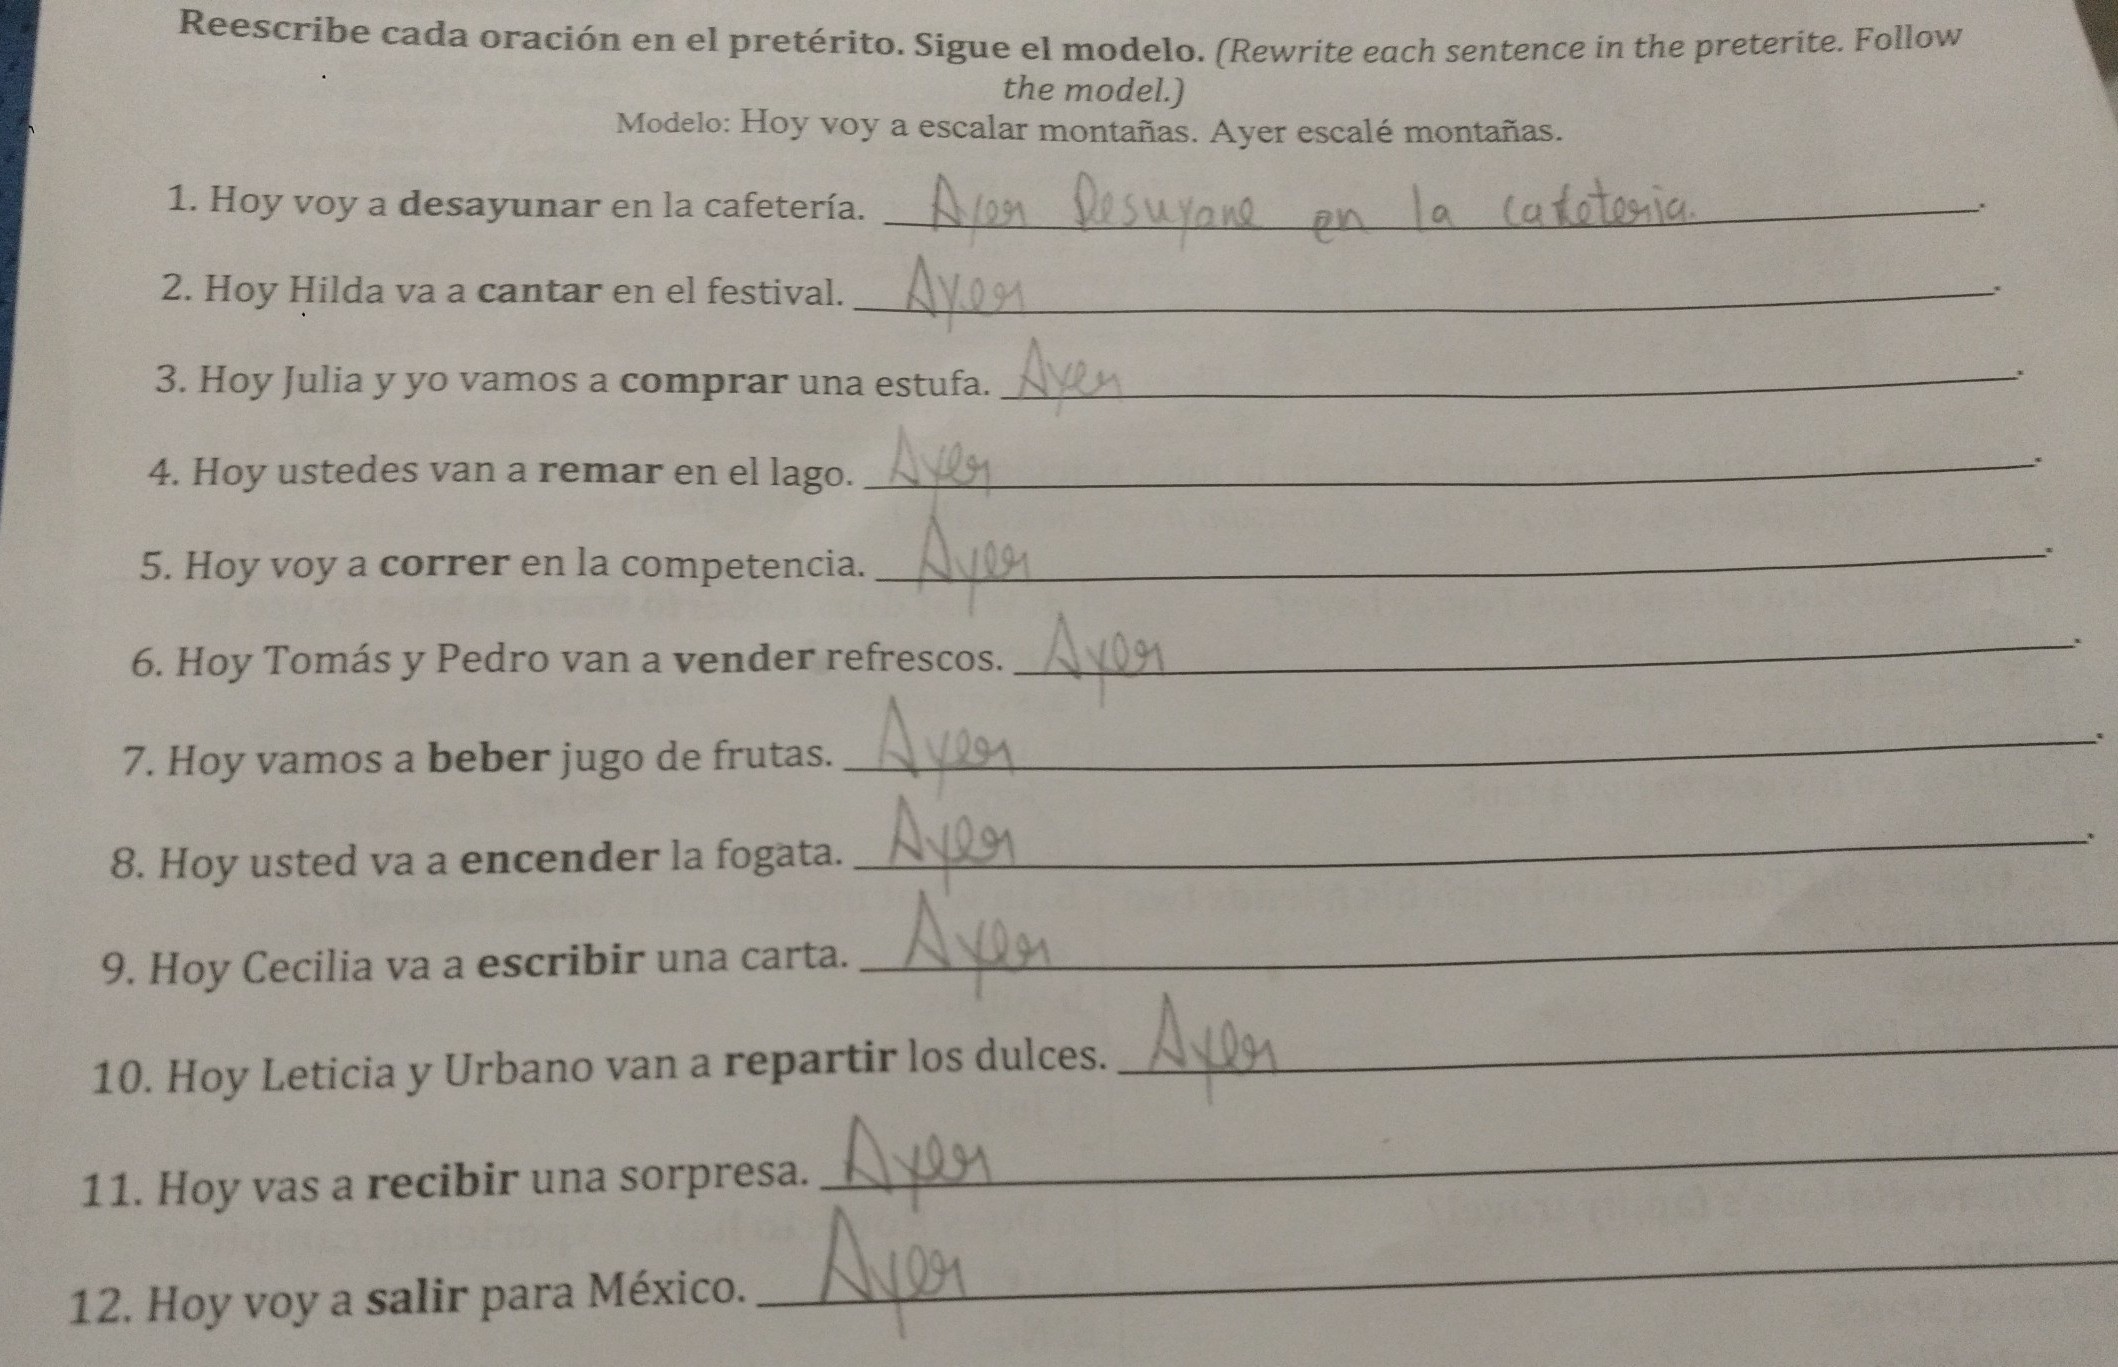 Reescribe cada oración en el pretérito. Sigue el modelo. (Rewrite each sentence in the preterite. Follow
the model.)
Modelo: Hoy voy a escalar montañas. Ayer escalé montañas.
1. Hoy voy a desayunar en la cafetería. Ayer Desuyane en la cafeteria.
2. Hoy Hilda va a cantar en el festival. Ayer
3. Hoy Julia y yo vamos a comprar una estufa. Ayer
4. Hoy ustedes van a remar en el lago. Ayer
5. Hoy voy a correr en la competencia. Ayer
6. Hoy Tomás y Pedro van a vender refrescos. Ayer
7. Hoy vamos a beber jugo de frutas. Ayer
8. Hoy usted va a encender la fogata. Ayer
9. Hoy Cecilia va a escribir una carta. Ayer
10. Hoy Leticia y Urbano van a repartir los dulces. Ayer
11. Hoy vas a recibir una sorpresa. Ayer
12. Hoy voy a salir para México. Ayer